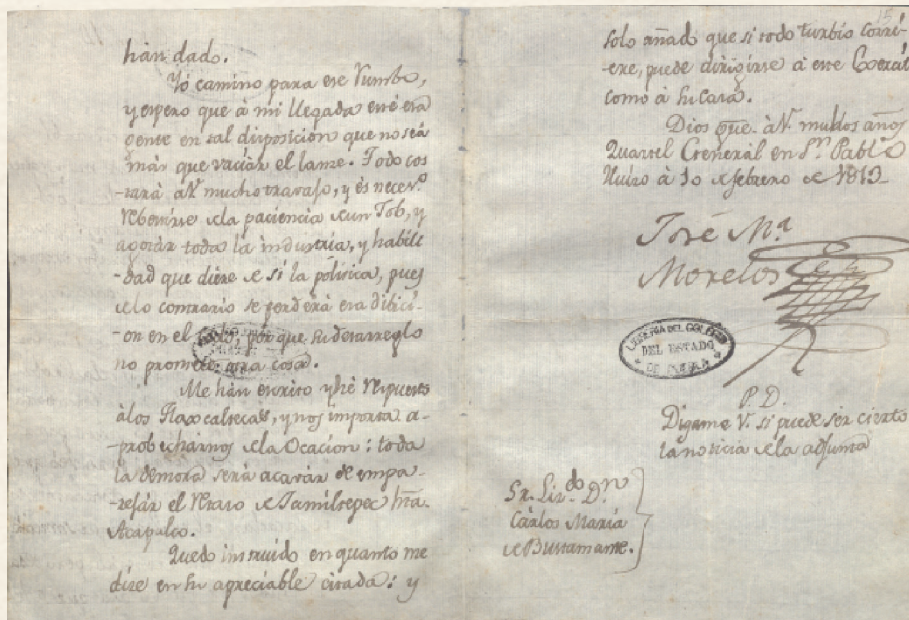 han dado.
Yó camino para ese rumbo,
y espero que à mi llegada esté esa
gente en tal disposicion que no sea
màs que vaciàr el lanse. Todo cos-
-tarà à V. mucho travajo, y és neces.º
rebestirse de la paciencia de un Job, y
agotàr toda la industria, y habili-
-dad que dicta de sí la política, pues
de lo contrario se perderá esa divici-
-on en el todo, por que su desarreglo
no promete otra cosa.
Me hàn escrito y hé respuesto
à los Tlaxcaltecas, y nos importa a-
-probecharnos de la Ocacion: toda
la demora serà acavàr de empa-
-rejàr el retaso de Jamiltepec hta.
Acapulco.
Quedo instruido en quanto me
dice en su apreciable citada: y
15
solo añado que si todo turbio corri-
-ere, puede dirigirse à este Exercito
como à su casa.
Dios gue. à V. muchos años
Quartel General en Sn. Pablo
Huizo à 10 de febrero de 1813
José Ma.
Morelos
LIBRERIA DEL COLEGIO
DEL ESTADO
DE PUEBLA
P. D.
Digame V. si puede sér cierto
la noticia de la adjunta
Sr. Lizdo. Dn.
Càrlos Marìa
de Bustamante.